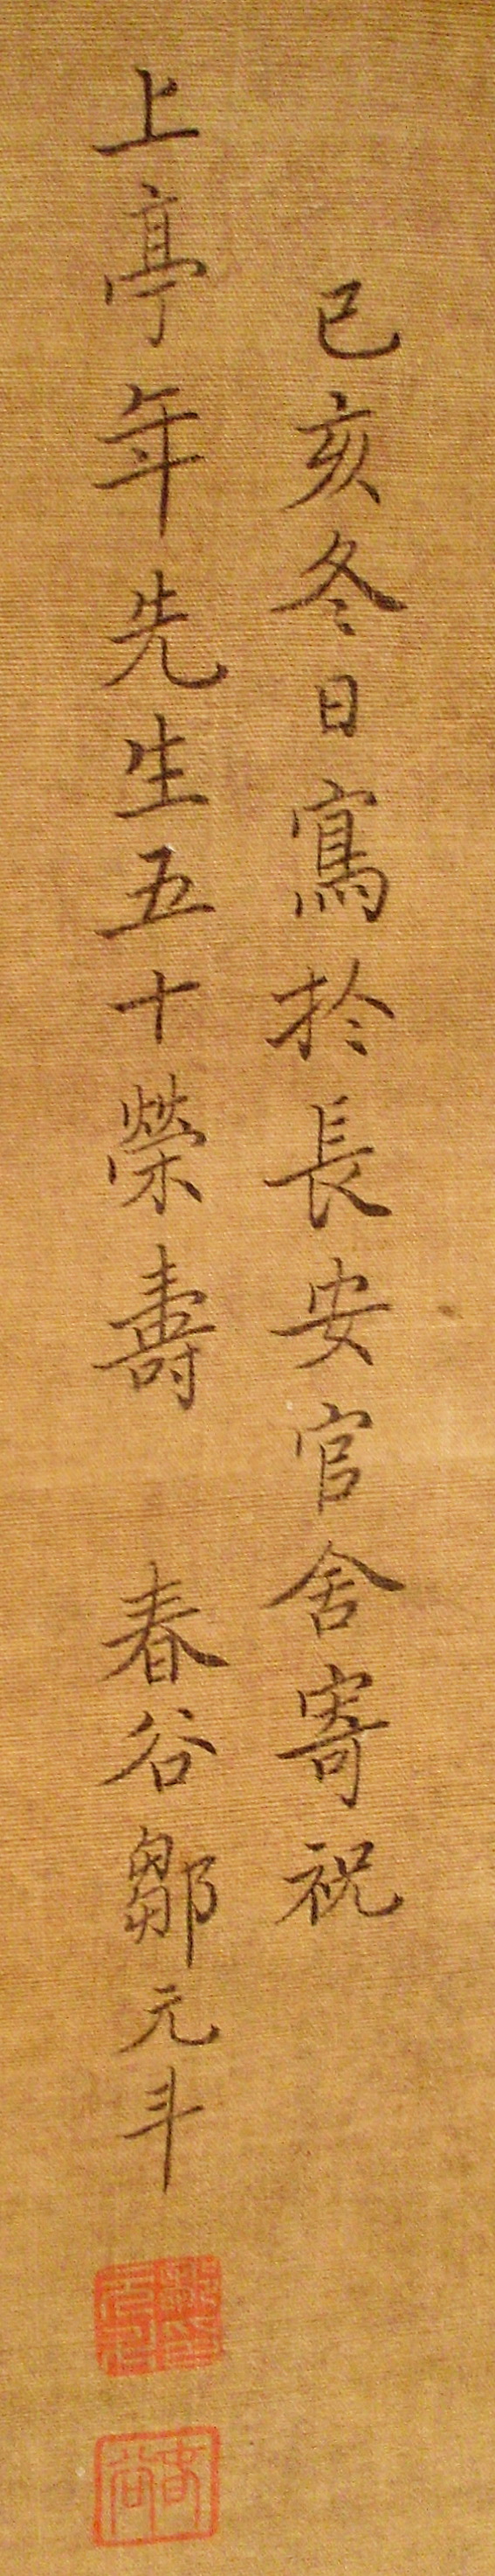 己亥冬日寫於長安官舍寄祝
上亭年先生五十榮壽 春谷鄒元斗
春谷